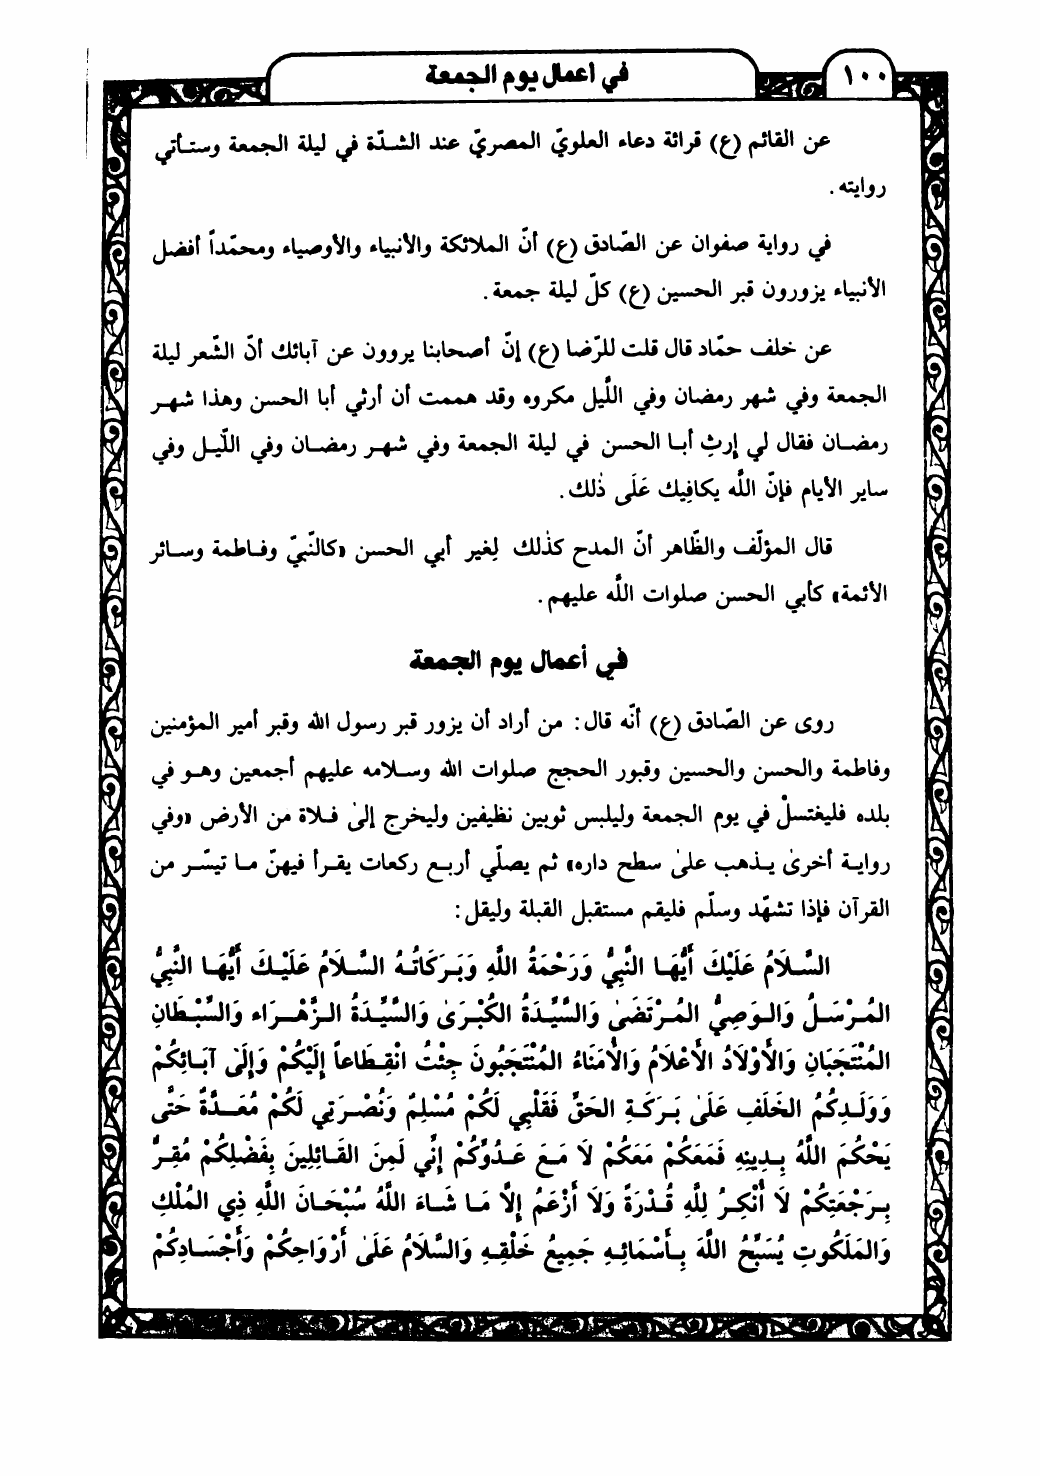 ١٠٠
في أعمال يوم الجمعة
عن القائم (ع) قرائة دعاء العلويّ المصريّ عند الشدّة في ليلة الجمعة وستأتي
روايته.
في رواية صفوان عن الصّادق (ع) أنّ الملائكة والأنبياء والأوصياء ومحمّداً أفضل
الأنبياء يزورون قبر الحسين (ع) كلّ ليلة جمعة.
عن خلف حمّاد قال قلت للرّضا (ع) إنّ أصحابنا يروون عن آبائك أنّ الشّعر ليلة
الجمعة وفي شهر رمضان وفي اللّيل مكروه وقد هممت أن أرثي أبا الحسن وهذا شهر
رمضان فقال لي إرثِ أبا الحسن في ليلة الجمعة وفي شهر رمضان وفي اللّيل وفي
ساير الأيام فإنّ اللّه يكافِيك عَلَى ذٰلك.
قال المؤلّف والظّاهر أنّ المدح كذٰلك لِغير أبي الحسن «كالنّبيّ وفاطمة وسائر
الأئمة» كأبي الحسن صلوات اللّه عليهم.
في أعمال يوم الجمعة
روى عن الصّادق (ع) أنّه قال: من أراد أن يزور قبر رسول الله وقبر أمير المؤمنين
وفاطمة والحسن والحسين وقبور الحجج صلوات الله وسلامه عليهم أجمعين وهو في
بلده فليغتسلْ في يوم الجمعة وليلبس ثوبين نظيفين وليخرج إلىٰ فلاة من الأرض «وفي
رواية أخرىٰ يذهب علىٰ سطح داره» ثم يصلّي أربع ركعات يقرأ فيهنّ ما تيسّر من
القرآن فإذا تشهّد وسلّم فليقم مستقبل القبلة وليقل:
السَّلَامُ عَلَيْكَ أَيُّهَا النَّبِيُّ وَرَحْمَةُ اللَّهِ وَبَرَكَاتُهُ السَّلَامُ عَلَيْكَ أَيُّهَا النَّبِيُّ
المُرْسَلُ وَالوَصِيُّ المُرْتَضَىٰ وَالسَّيِّدَةُ الكُبْرَىٰ وَالسَّيِّدَةُ الزَّهْرَاء وَالسِّبْطَانِ
المُنْتَجَبَانِ وَالأَوْلَادُ الأَعْلَامُ وَالأُمَنَاءُ المُنْتَجَبُونَ جِئْتُ انْقِطَاعاً إِلَيْكُمْ وَإِلَىٰ آبَائِكُمْ
وَوَلَدِكُمُ الخَلَفِ عَلَىٰ بَرَكَةِ الحَقِّ فَقَلْبِي لَكُمْ مُسْلِمٌ وَنُصْرَتِي لَكُمْ مُعَدَّةٌ حَتَّى
يَحْكُمَ اللَّهُ بِدِينِهِ فَمَعَكُمْ مَعَكُمْ لَا مَعَ عَدُوِّكُمْ إِنِّي لَمِنَ القَائِلِينَ بِفَضْلِكُمْ مُقِرٌّ
بِرَجْعَتِكُمْ لَا أُنْكِرُ لِلَّهِ قُدْرَةً وَلَا أَزْعَمُ إِلَّا مَا شَاءَ اللَّهُ سُبْحَانَ اللَّهِ ذِي المُلْكِ
وَالمَلَكُوتِ يُسَبِّحُ اللَّهَ بِأَسْمَائِهِ جَمِيعُ خَلْقِهِ وَالسَّلَامُ عَلَىٰ أَرْوَاحِكُمْ وَأَجْسَادِكُمْ